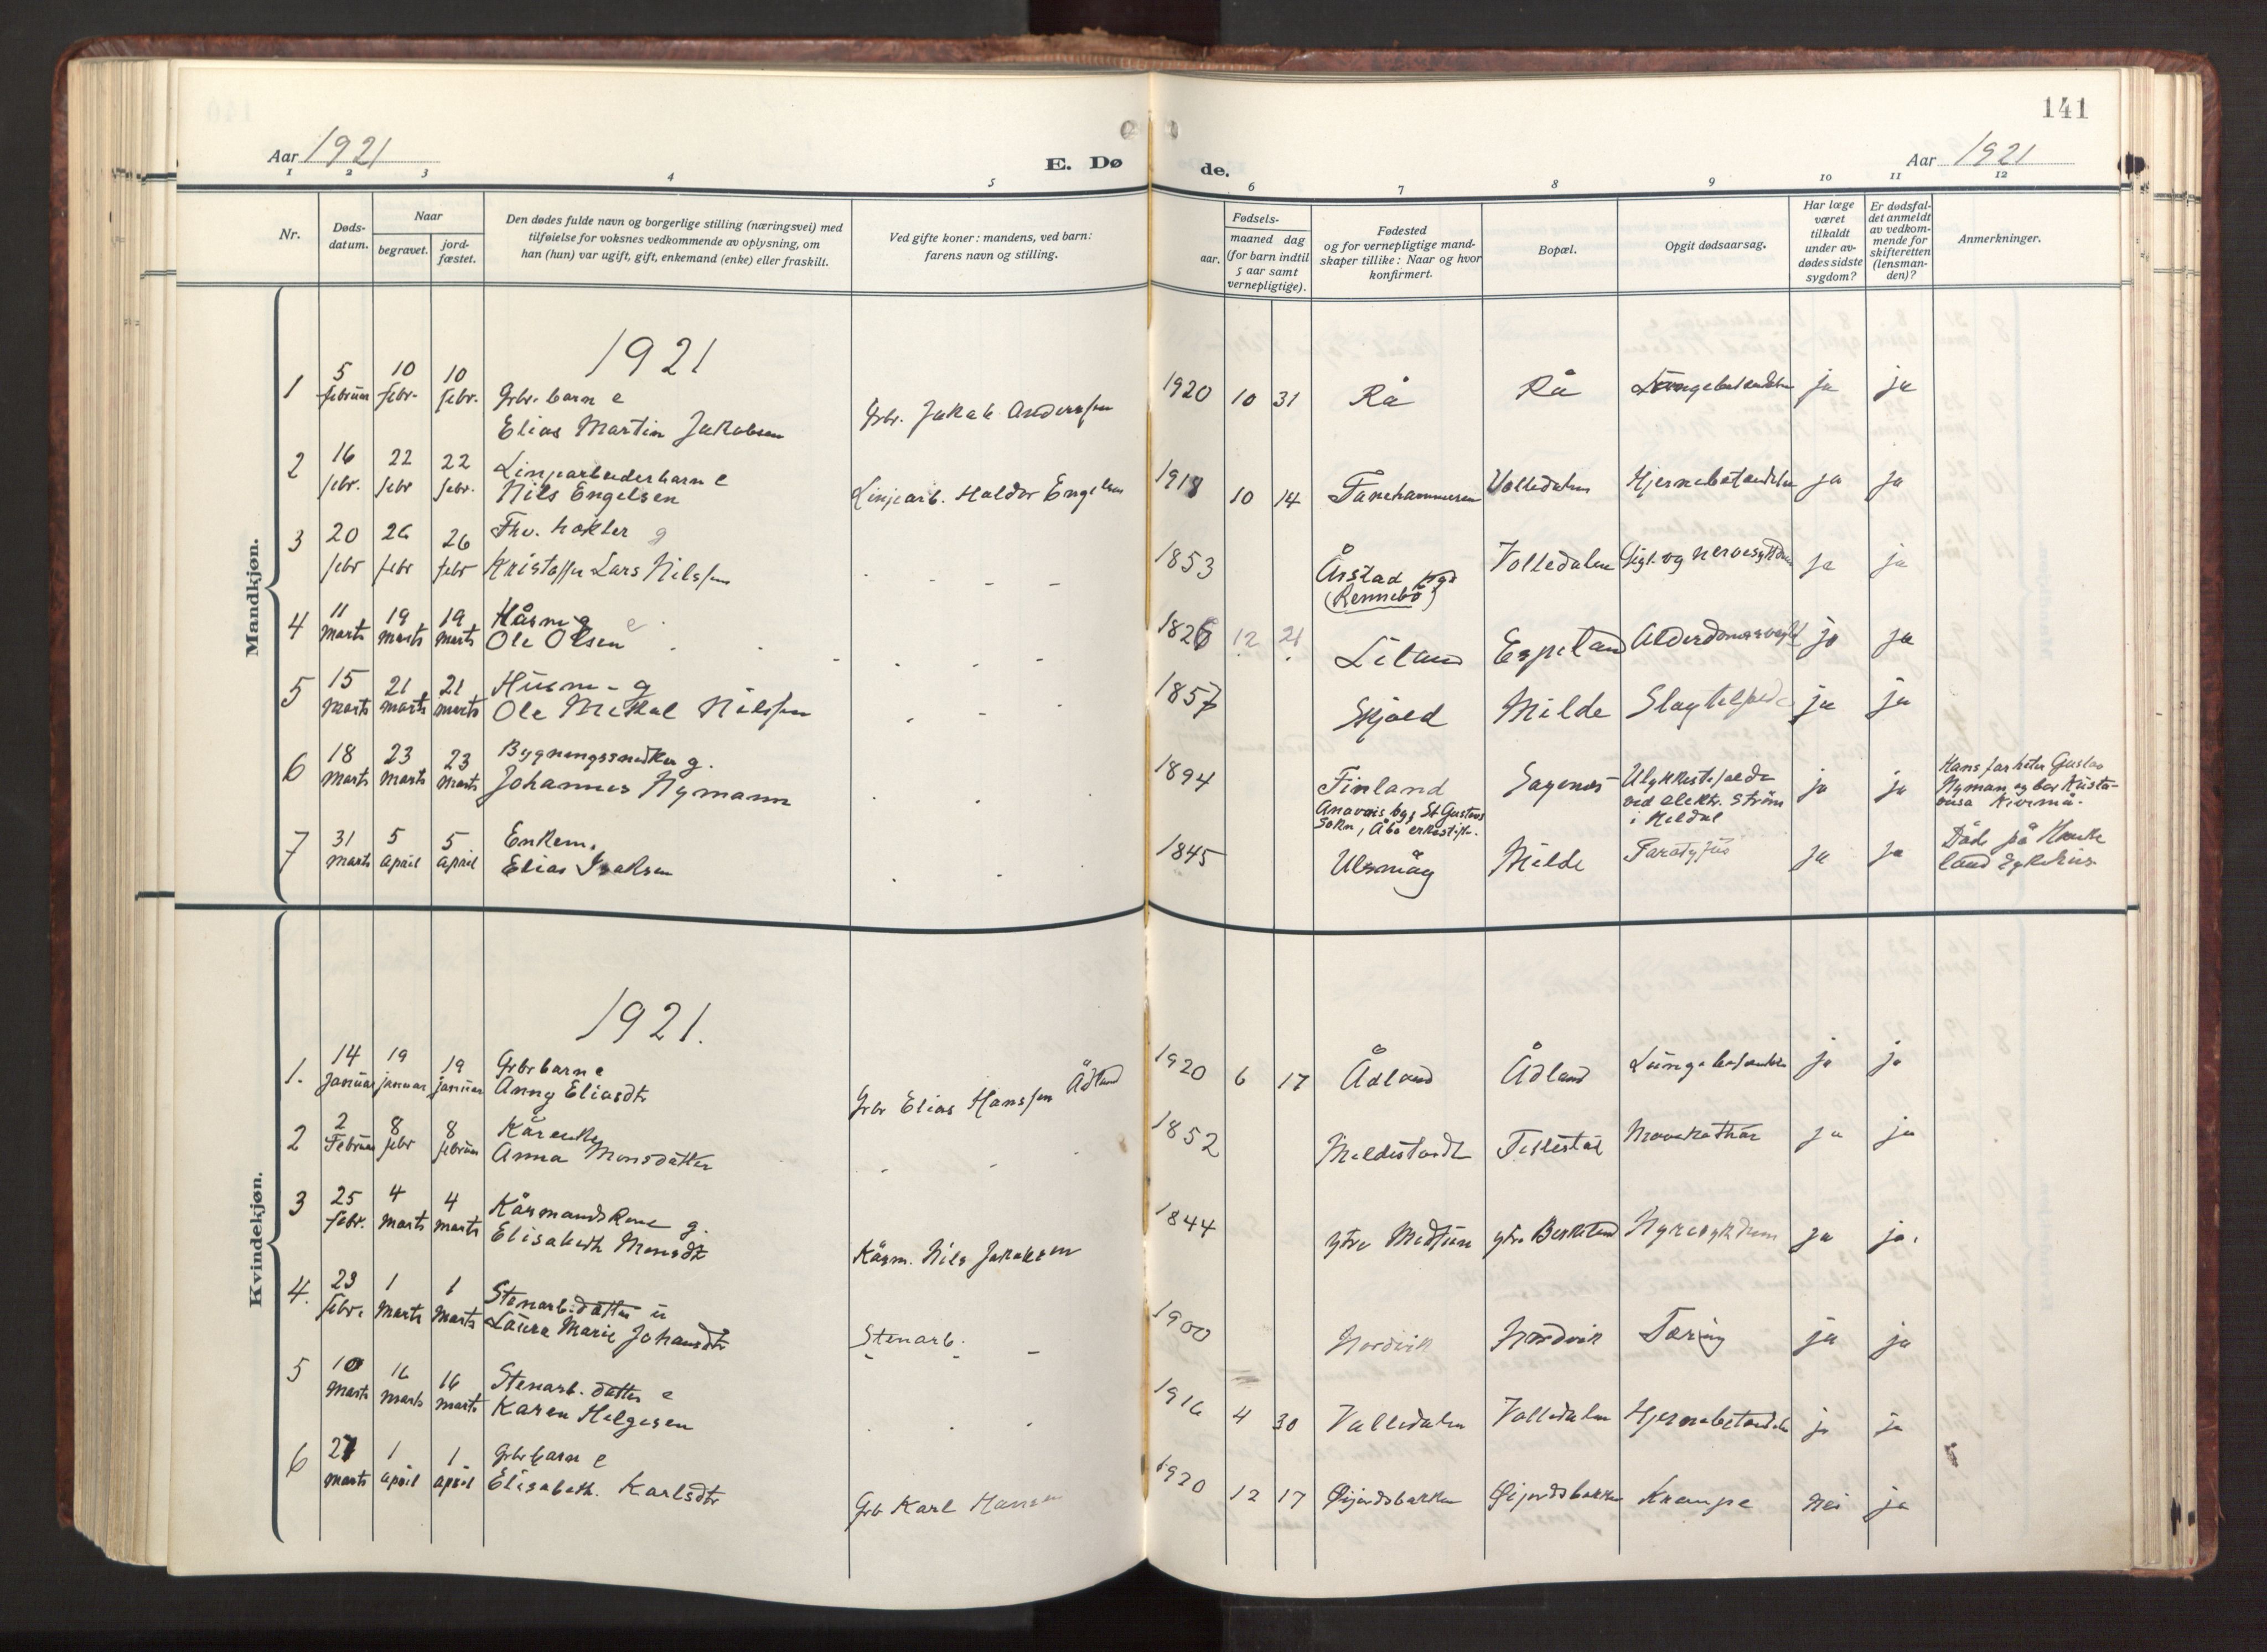 141
Aar 1921
E. Dø
de.
Aar 1921
1 2 3 4 5 6 7 8 9 10 11 12
Nr.
Døds-
datum.
Naar
begravet.
jord-
fæstet.
Den dødes fulde navn og borgerlige stilling (næringsvei) med
tilføielse for voksnes vedkommende av oplysning, om
han (hun) var ugift, gift, enkemand (enke) eller fraskilt.
Ved gifte koner: mandens, ved barn:
farens navn og stilling.
Fødsels-
aar.
maaned dag
(for barn indtil
5 aar samt
vernepligtige).
Fødested
og for vernepligtige mand-
skaper tillike: Naar og hvor
konfirmert.
Bopæl.
Opgit dødsaarsag.
Har læge
været
tilkaldt
under av-
dødes sidste
sygdom?
Er dødsfal-
det anmeldt
av vedkom-
mende for
skifteretten
(lensman-
den)?
Anmerkninger.
Mandkjøn.
1921
1 5 februar 10 febr. 10 febr. Grbr. barn e
Elias Martin Jakobsen Grbr. Jakob Anderssen 1920 10 31 Rå Rå Lungebetændelse ja ja
2 16 febr. 22 febr 22 febr. Linjearbeiderbarn e
Nils Engelsen Linjearb. Haldor Engelsen 1918 10 14 Fanehammeren Volledalen Hjernebetændelse ja ja
3 20 febr 26 febr 26 febr Fhv. høker g
Kristoffer Lars Nilssen 1853 Årstad pgd
(Rennebø) Volledalen Gigt. og nervesygdom ja ja
4 11 marts 19 marts 19 marts Kårm g e
Ole Olsen 1826 12 21 Liland Espeland Alderdomssvaghed ja ja
5 15 marts 21 marts 21 marts Husm - g
Ole Mikal Nilssen 1857 Skjold Milde Slagtilfælde ja ja
6 18 marts 23 marts 23 marts Bygningssnedker g.
Johannes Nymann 1894 Finland
by, St Gustavs
Sokn, Åbo erkestift. Sagenes Ulykkestilfælde
ved elektr. strøm
i Kildal ja ja Hans far heter Gustav
Nyman og bor
7 31 marts 5 april 5 april Enkem.
Elias Isaksen 1845 Ulsmåg Milde Paratyfus ja ja Døde på Hauke
land sykehus
Kvindekjøn.
1921.
1. 14 januar 19 januar 19 januar Grbr barn e
Anny Eliasdtr Grbr Elias Hanssen Ådland 1920 6 17 Ådland Ådland Lungebetændelse ja ja
2 2 Februar 8 febr 8 februar Kårenke
Anna Monsdatter 1852 Mildestvedt Titlestad Mavekathar ja ja
3 25 febr. 4 marts 4 marts Kårmandskone g.
Elisabeth Monsdtr Kårm. Nils Jakobsen 1844 ytre Midtun ytre Birkeland Nyresykdom ja ja.
4. 23 febr. 1 marts 1 marts Stenarb. datter u
Laura Marie Johansdtr Stenarb. 1900 Hordvik Hordvik Tæring ja ja
5 10 marts 16 marts 16 marts Stenarb. datter e
Karen Helgesen 1916 4 30 Volledalen Volledalen Hjernebetændelse ja ja
6 27 marts 1 april 1 april Grbr barn e
Elisabeth. Karlsdtr Grb Karl Hansen 1920 12 17 Øijordsbakken Øijordsbakken Krampe nei ja